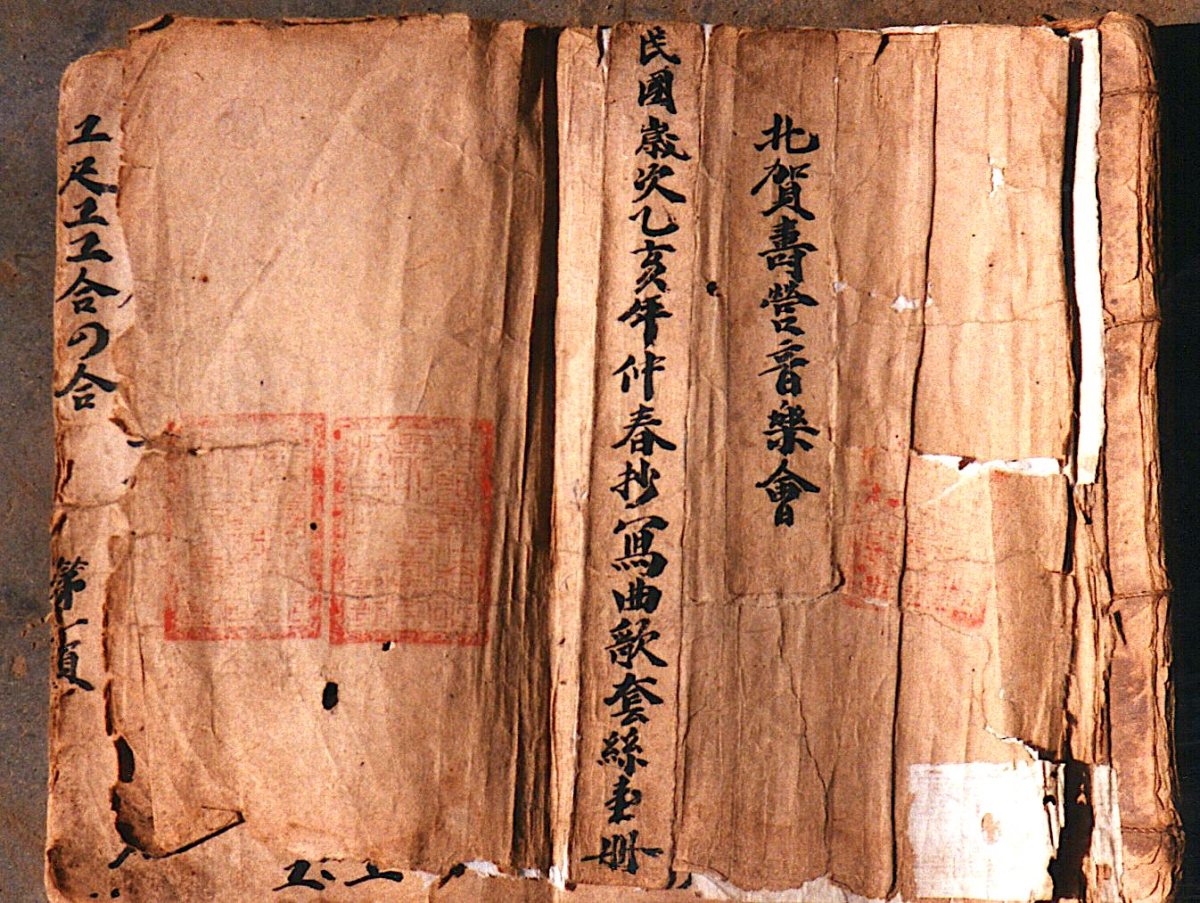 北賀壽營音樂會
民國歲次乙亥年仲春抄寫曲歌套絲
冊
工尺工工合の合
第一頁